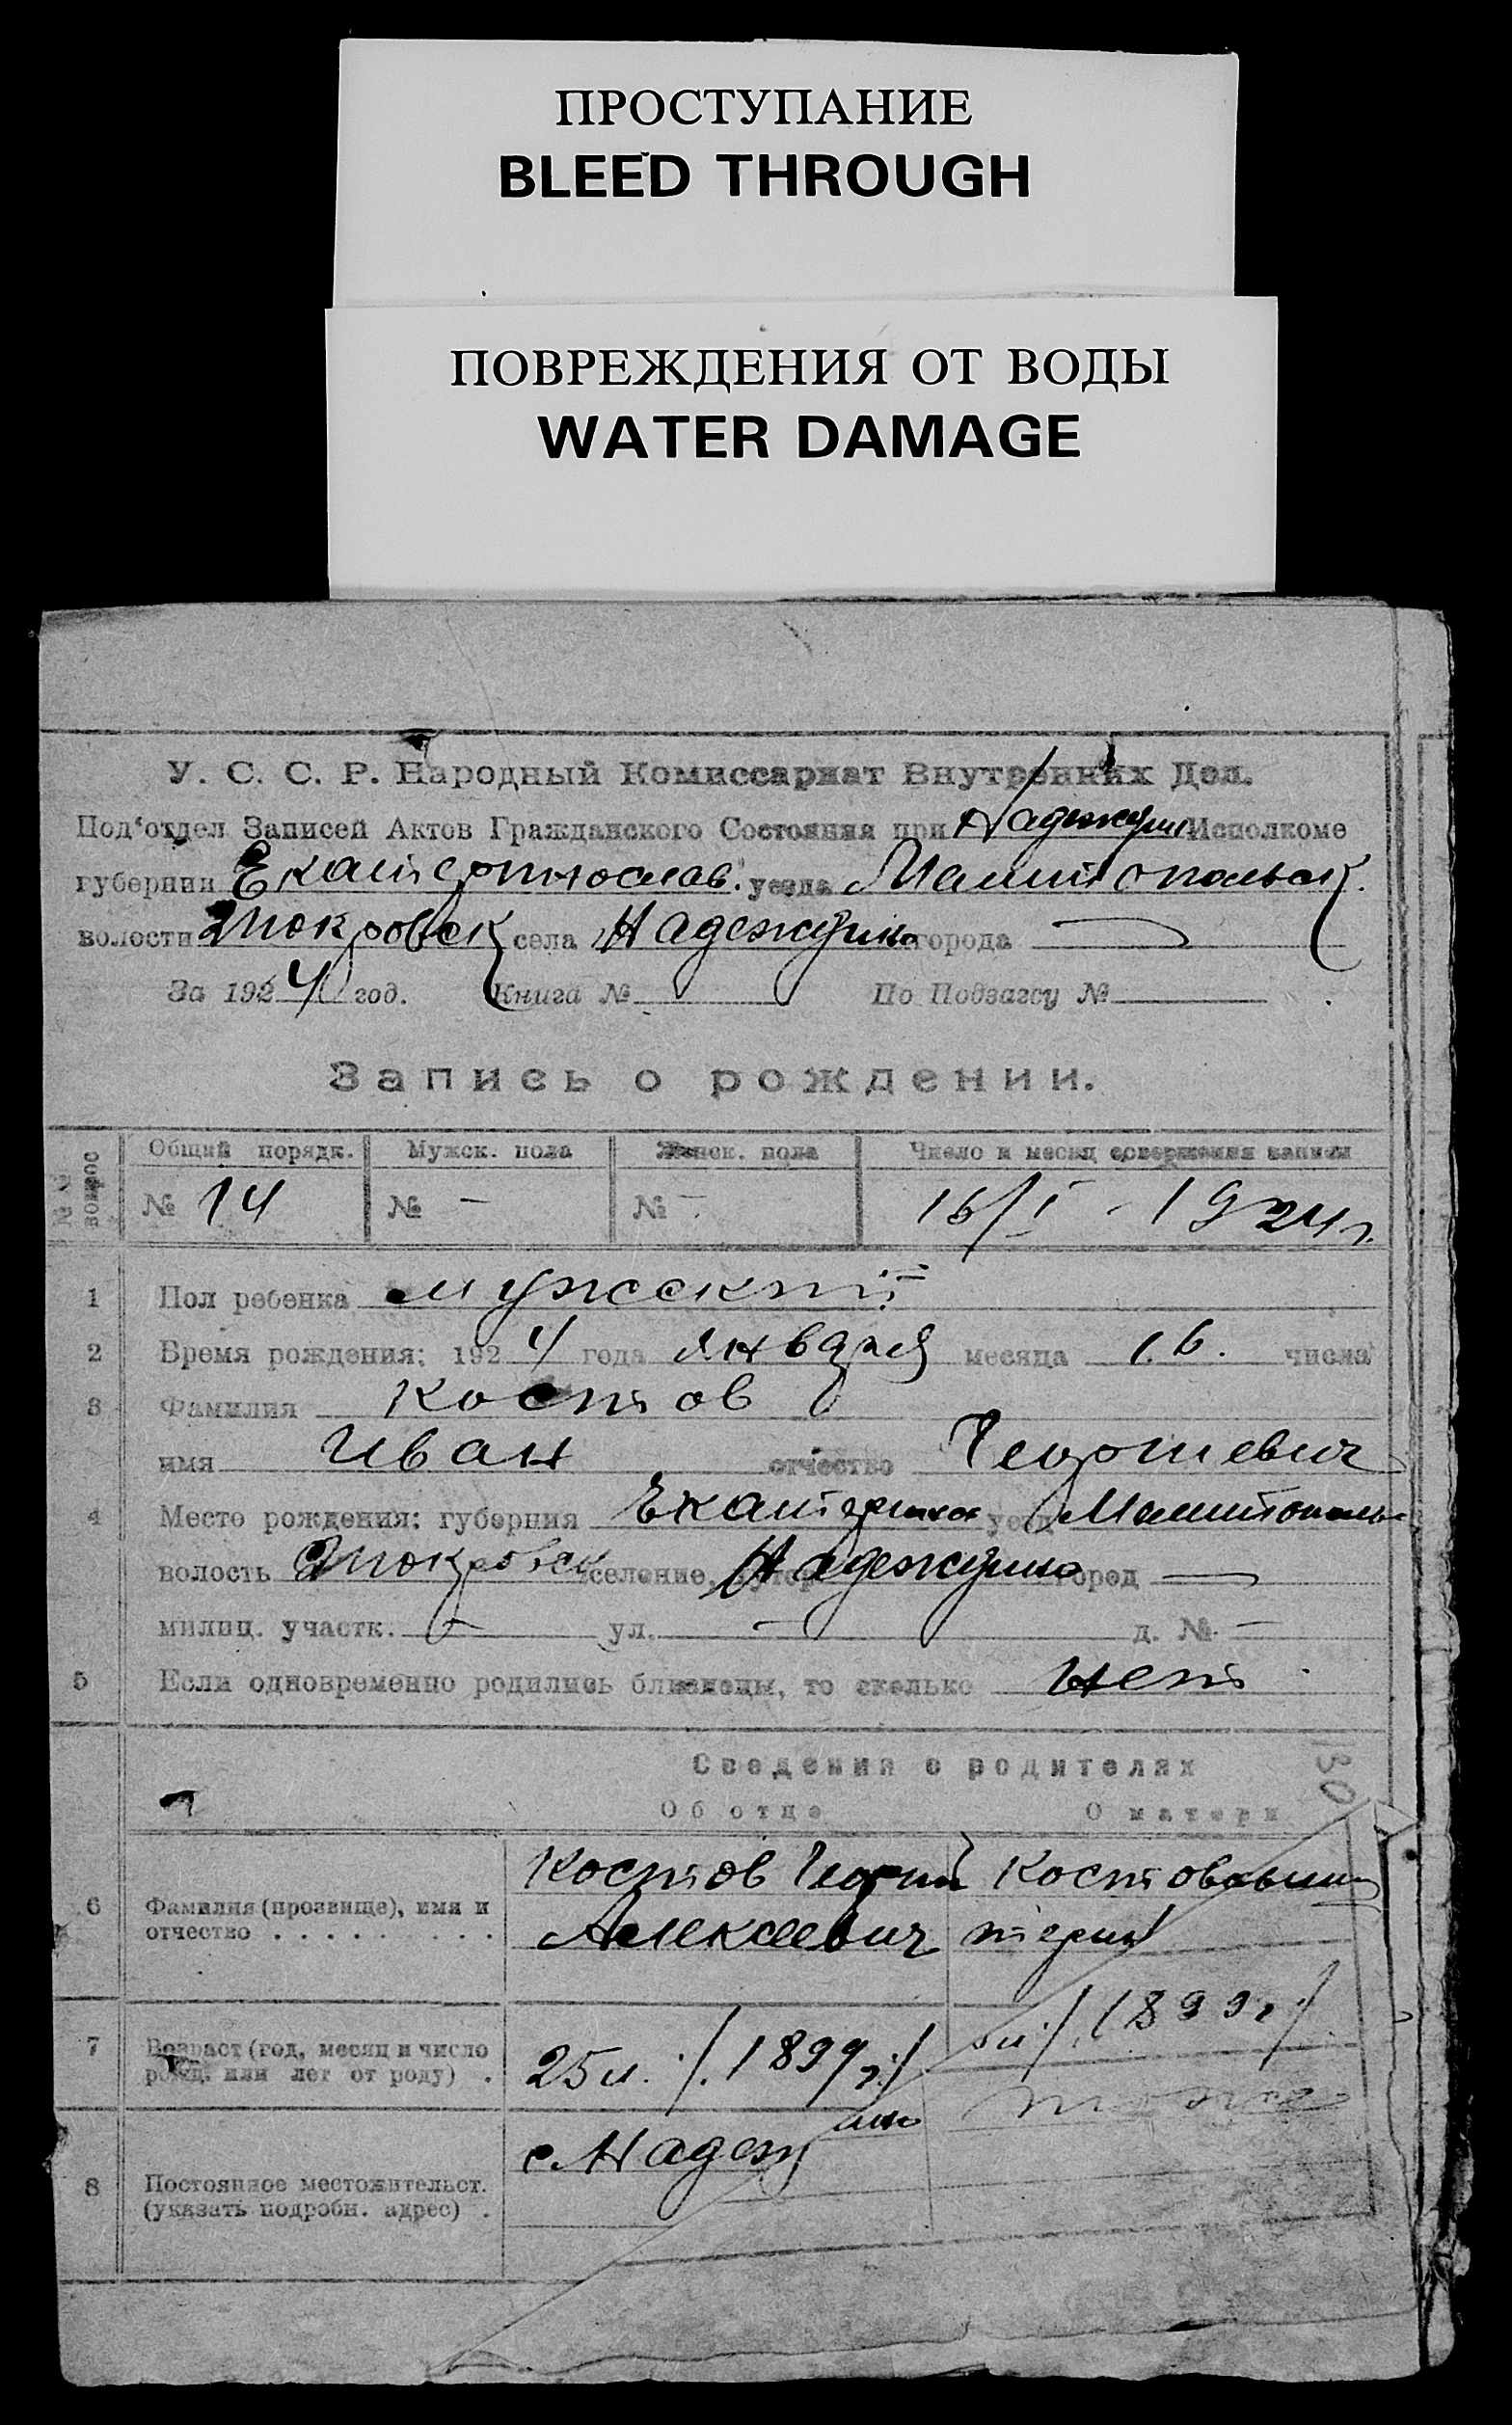 ПРОСТУПАНИЕ
BLEED THROUGH
ПОВРЕЖДЕНИЯ ОТ ВОДЫ
WATER DAMAGE
У. С. С. Р. Народный Комиссариат Внутренних Дел.
Под'отдел Записей Актов Гражданского Состояния при Надеждин Исполкоме
губернии Екатеринослав. уезда Мелитопольск.
волости Покровск села Надеждино города —
За 1924 год. Книга № По Подзагсу №
Запись о рождении.
№№ вопрос
Общий порядк. Мужск. пола Женск. пола Число и месяц совершения записи
№ 14 № - № - 16/I - 1924 г.
1 Пол ребенка мужеский
2 Время рождения: 1924 года января месяца 16. числа
3 Фамилия Костов
имя Иван отчество Георгиевич
4 Место рождения: губерния Екатерино уезд Мелитополь
волость Покровск селение, хутор Надеждино город —
милиц. участк. — ул. — д. № —
5 Если одновременно родились близнецы, то сколько нет
130
Сведения о родителях
Об отце О матери
6 Фамилия (прозвище), имя и отчество . . . . . . . . . Костов Георгий Алексеевич Костова
7 Возраст (год, месяц и число рожд. или лет от роду) . 25 л. /. 1899 г./ /1899 г./
8 Постоянное местожительст. (указать подробн. адрес) . с. Надеждино тоже